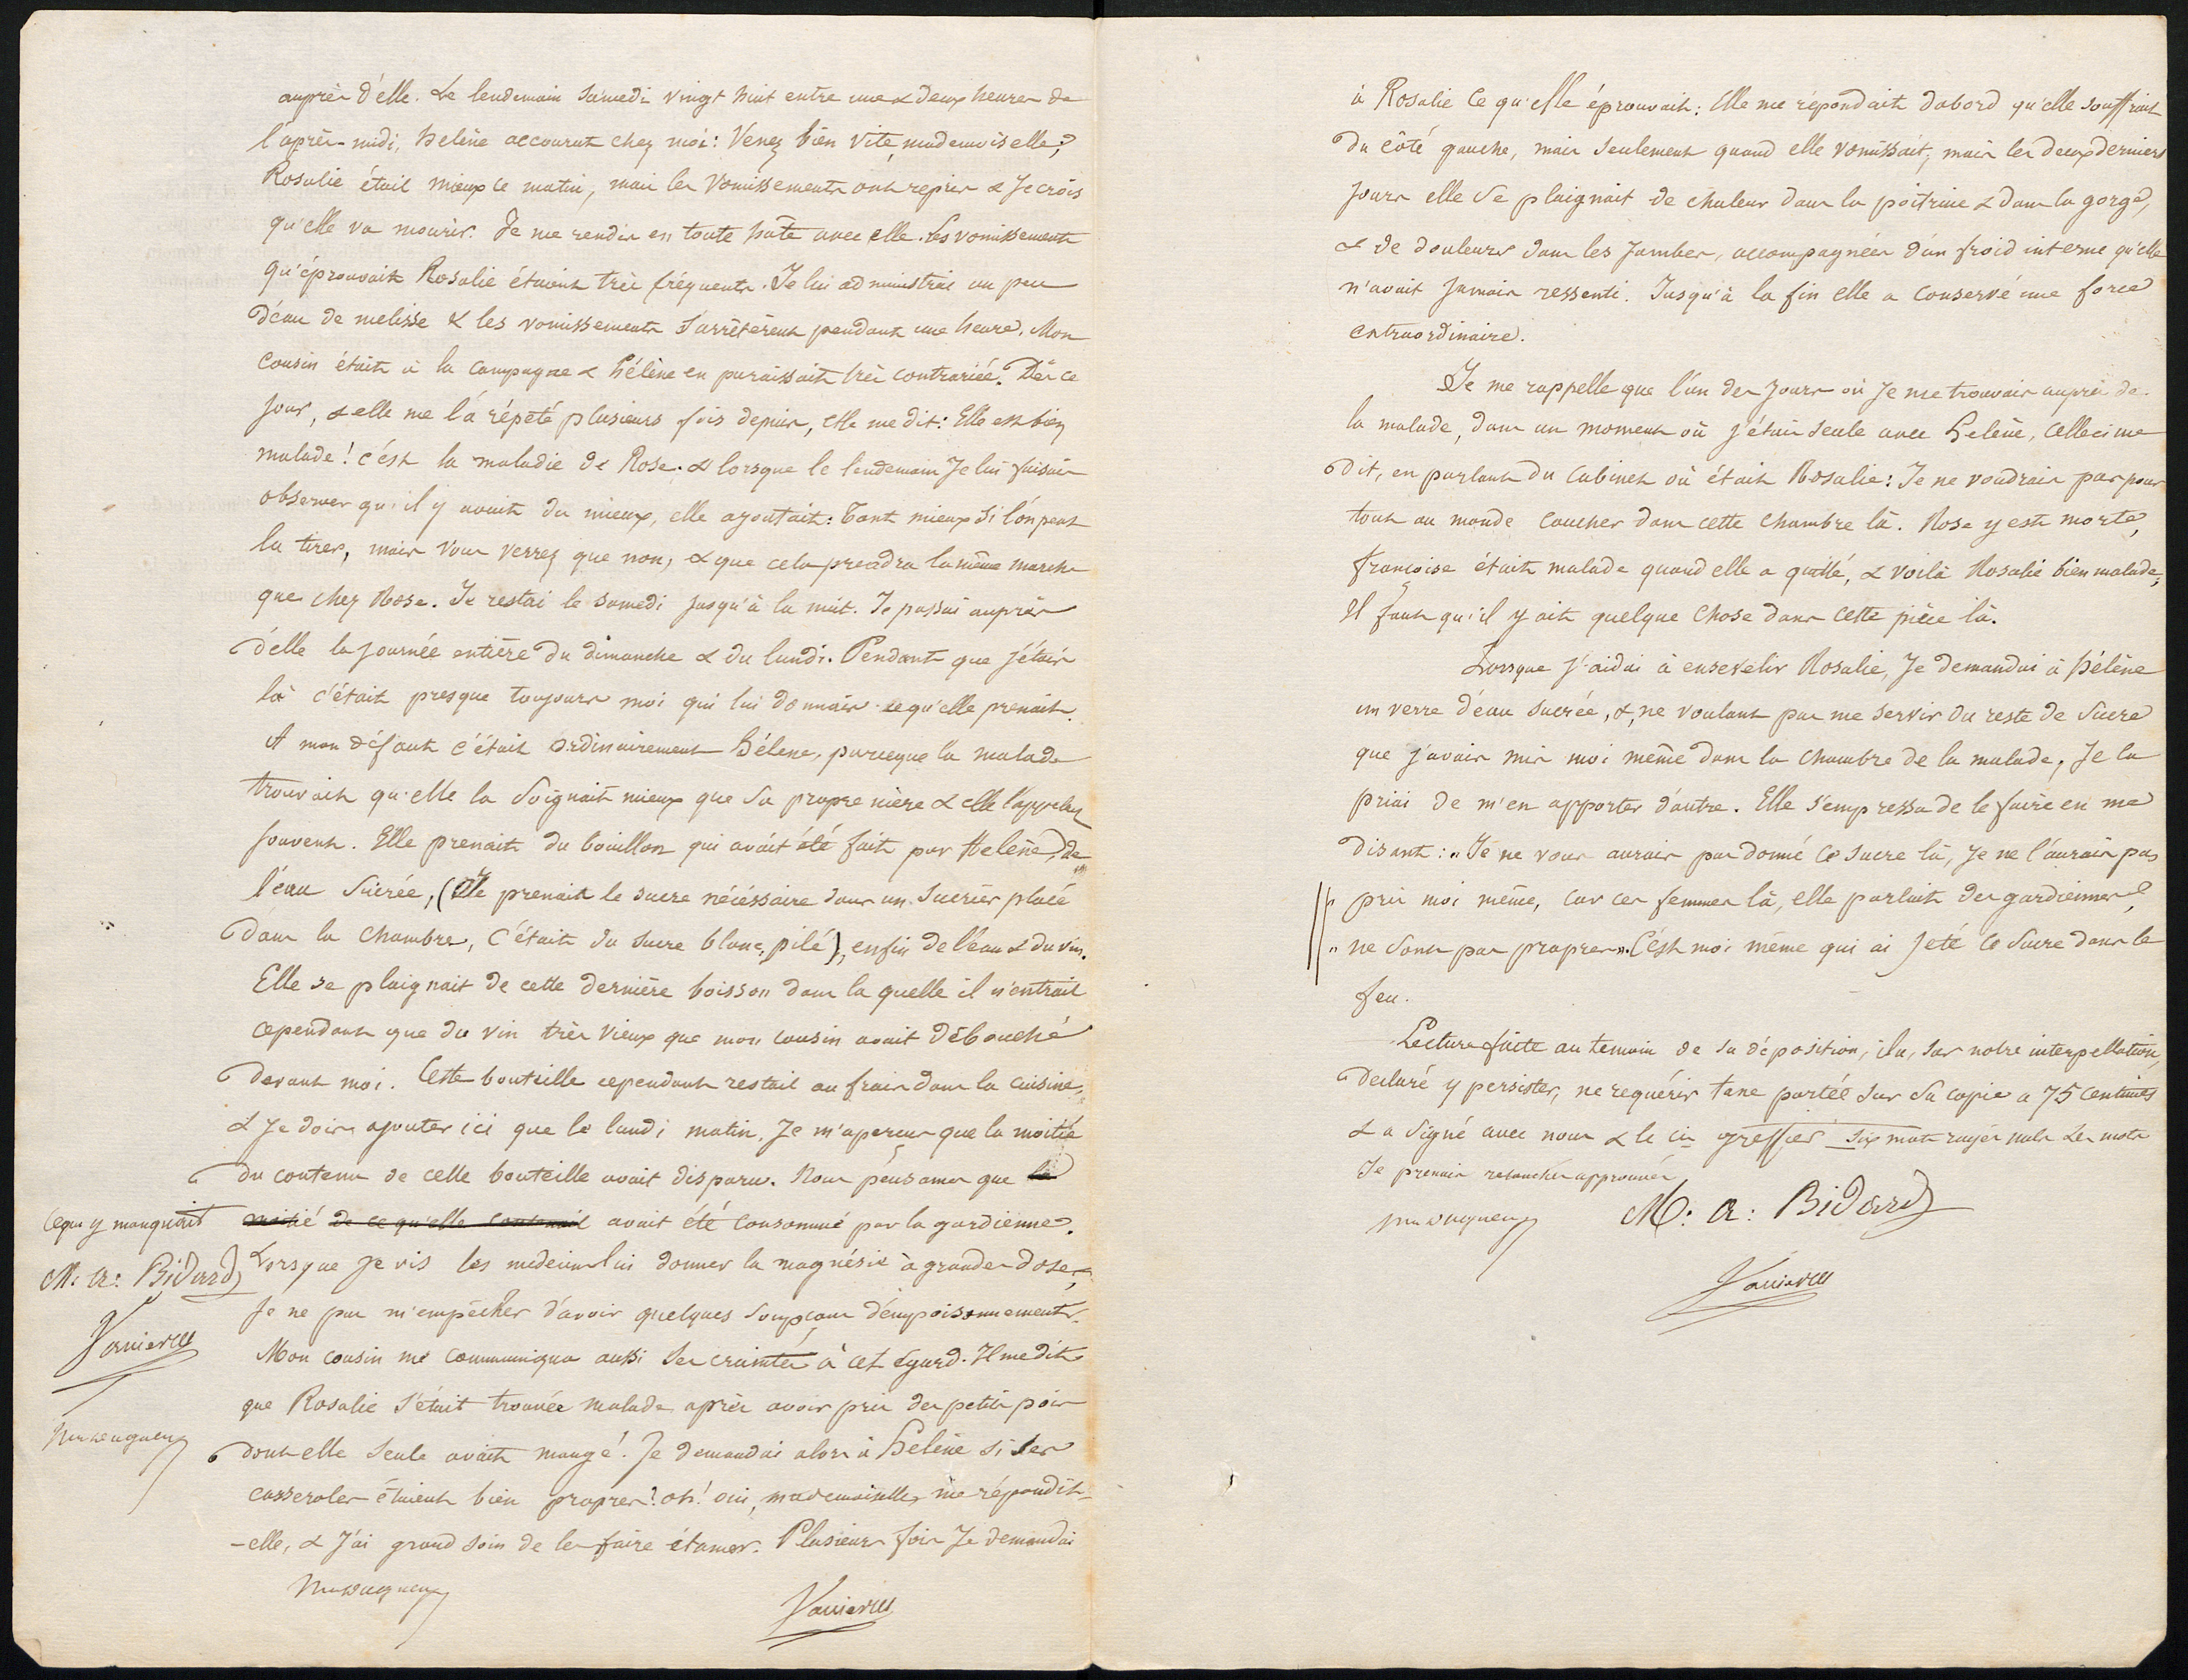 auprès d'elle. Le lendemain samedi vingt huit entre une & deux heures de
l'après-midi, Helène accourut chez moi: Venez bien vite, mademoiselle,
Rosalie était mieux ce matin, mais les vomissements ont repris & Je crois
qu'elle va mourir. Je me rendis en toute hâte avec elle. Les vomissements
qu'éprouvait Rosalie étaient très fréquents. Je lui administrai un peu
d'eau de melisse & les vomissements s'arrêtèrent pendant une heure. Mon
cousin était à la campagne & hélène en paraissait très contrariée. Dès ce
jour, & elle me l'a répété plusieurs fois depuis, elle me dit: Elle est bien
malade! c'est la maladie de Rose. & lorsque le lendemain Je lui faisais
observer qu'il y avait du mieux, elle ajoutait: Tant mieux si l'on peut
la tirer, mais vous verrez que non, & que cela prendra la même marche
que chez Rose. Je restai le samedi jusqu'à la nuit. Je passai auprès
d'elle la journée entière du dimanche & du lundi. Pendant que j'étais
là c'était presque toujours moi qui lui donnais ce qu'elle prenait.
A mon défaut c'était ordinairement hélene, parceque la malade
trouvait qu'elle la soignait mieux que sa propre mère & elle l'appelait
souvent. Elle prenait du bouillon qui avait été fait par Helène, de
l'eau sucrée, (Je prenais le sucre nécéssaire dans un sucrier placé
dans la chambre, c'était du sucre blanc, pilé), enfin de l'eau & du vin.
Elle se plaignait de cette dernière boisson dans la quelle il n'entrait
cependant que du vin très vieux que mon cousin avait débouché
devant moi. Cette bouteille cependant restait au frais dans la cuisine,
& Je dois ajouter ici que le lundi matin, Je m'aperçus que la moitié
du contenu de cette bouteille avait disparu. Nous pensames que la
ce qui y manquait
moitié de ce qu'elle contenait avait été consommé par la gardienne.
M. A. Bidard
Lorsque Je vis les medecins lui donner la magnésie à grandes doses,
Je ne pus m'empêcher d'avoir quelques soupçons d'empoisonnements.
Mon cousin me communiqua aussi ses craintes à cet égard. Il me dit
que Rosalie s'était trouvée malade après avoir pris des petits pois
dont elle seule avait mangé. Je demandai alors à Helène si ses
casseroles étaient bien propres? oh! oui, mademoiselle, me répondit-
-elle, & J'ai grand soin de les faire étamer. Plusieurs fois Je demandai
à Rosalie ce qu'elle éprouvait: Elle me répondait dabord qu'elle souffrait
du côté gauche, mais seulement quand elle vomissait; mais les deux derniers
jours elle se plaignait de chaleur dans la poitrine & dans la gorge,
& de douleurs dans les jambes, accompagnées d'un froid interne qu'elle
n'avait jamais ressenti. Jusqu'à la fin elle a conservé une force
extraordinaire.
Je me rappelle que l'un des jours où Je me trouvais auprès de
la malade, dans un moment où j'étais seule avec Helène, celleci me
dit, en parlant du cabinet où était Rosalie: Je ne voudrais pas pour
tout au monde coucher dans cette chambre là. Rose y est morte,
françoise était malade quand elle a quitté, & voilà Rosalie bien malade;
Il faut qu'il y ait quelque chose dans cette pièce là.
Lorsque j'aidai à ensevelir Rosalie, Je demandai à hélène
un verre d'eau sucrée, &, ne voulant pas me servir du reste de sucre
que j'avais mis moi même dans la chambre de la malade, Je la
priai de m'en apporter d'autre. Elle s'empressa de le faire en me
disant: "Je ne vous aurais pas donné ce sucre là, Je ne l'aurais pas
" pris moi même, car ces femmes là, elle parlait des gardiennes,
" ne sont pas propres". C'est moi même qui ai jeté ce sucre dans le
feu.
Lecture faite au temoin de sa déposition, il a, sur notre interpellation,
declaré y persister, ne requérir taxe portée sur sa copie a 75 centimes
& a signé avec nous & le cis greffier six mots rayés nuls Les mots
Je prenais retouchés approuvés
M. A. Bidard